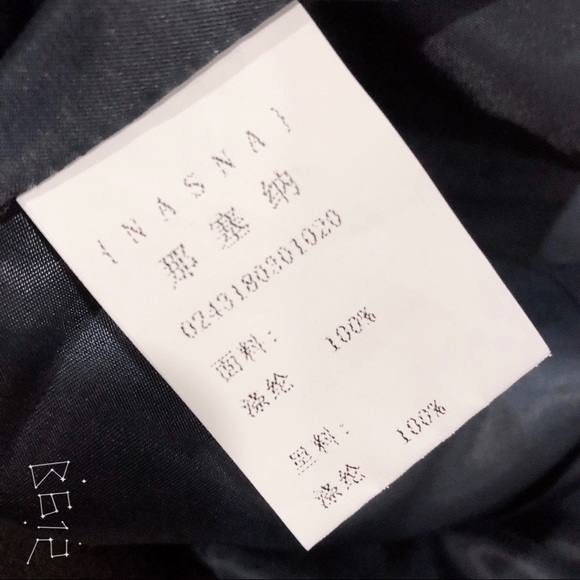 {NASNA}
那塞纳
0243180201020
面料:
涤纶 100%
里料:
涤纶 100%
B612